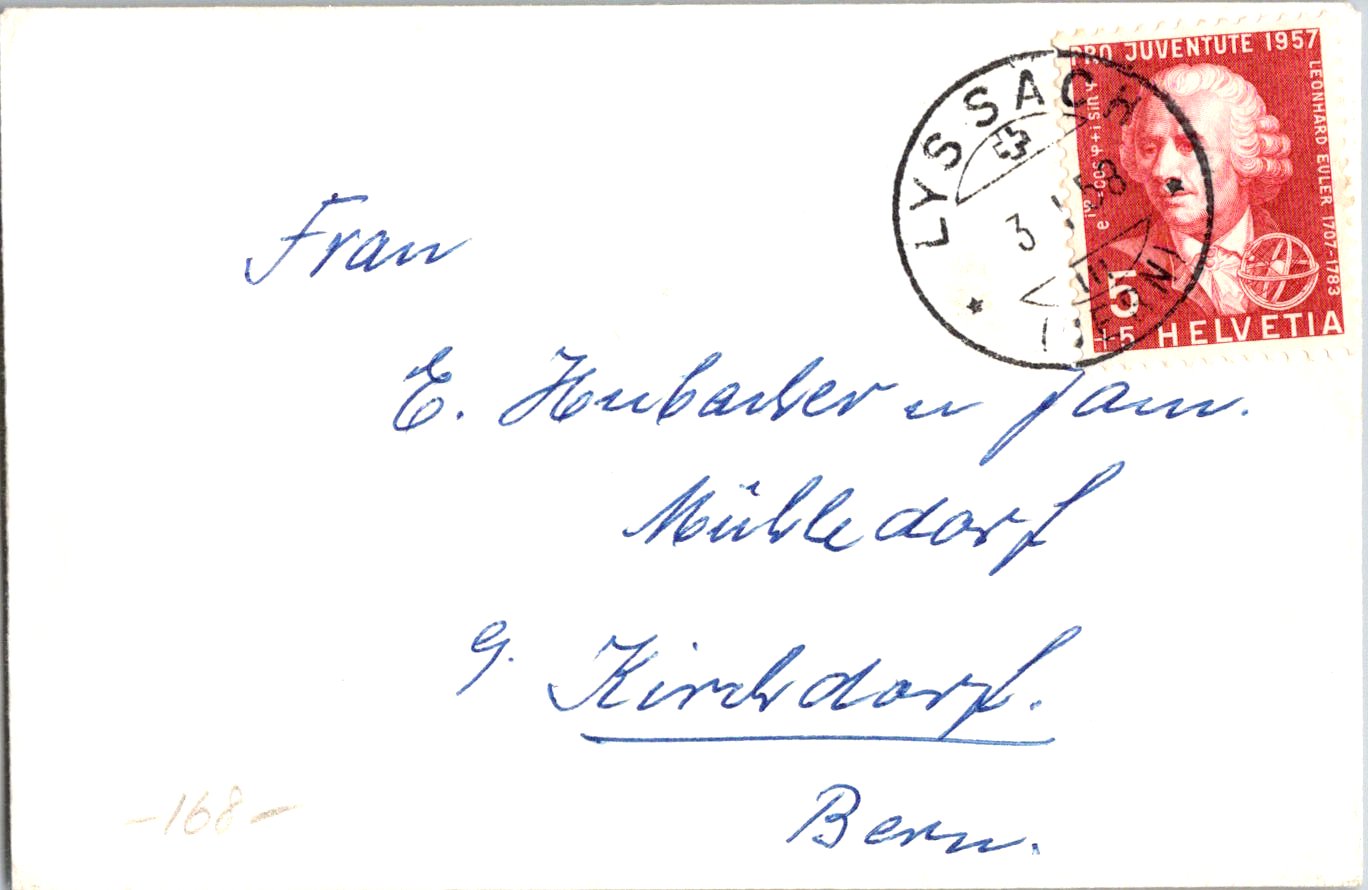 PRO JUVENTUTE 1957
LEONHARD EULER 1707-1783
e^iφ=cos φ+i sin φ
5
+5 HELVETIA
LYSSACH
3. I. 58
(BERN)
Frau
E. Hubacher u Fam.
Mühledorf
g. Kirchdorf.
Bern.
-168-